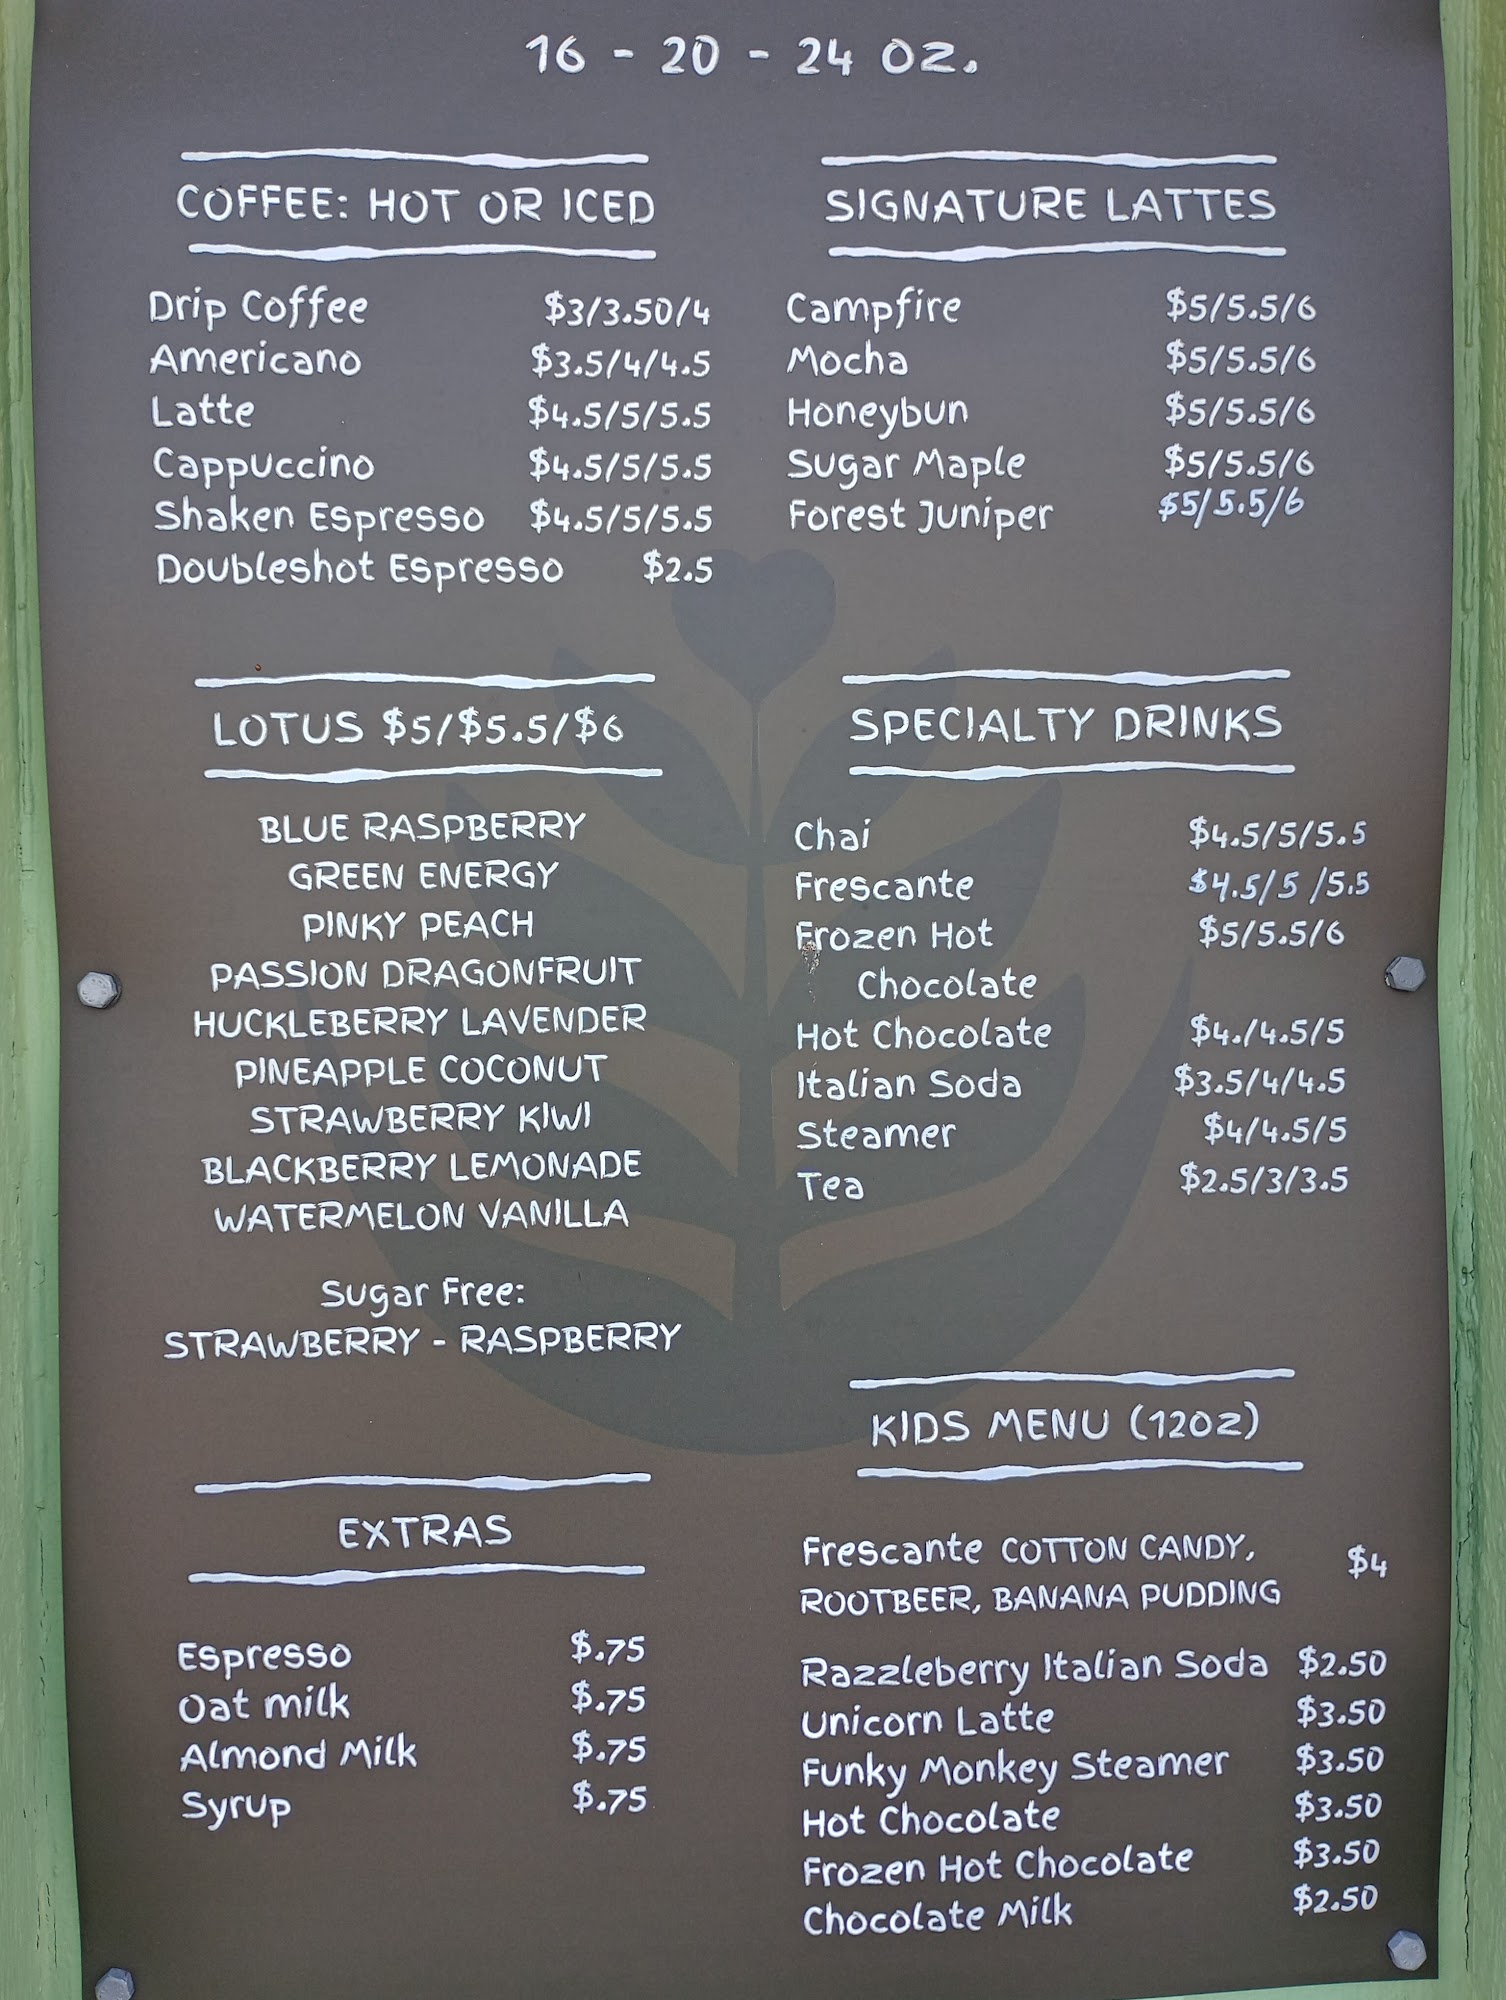 16 - 20 - 24 OZ.
COFFEE: HOT OR ICED
Drip Coffee $3/3.50/4
Americano $3.5/4/4.5
Latte $4.5/5/5.5
Cappuccino $4.5/5/5.5
Shaken Espresso $4.5/5/5.5
Doubleshot Espresso $2.5
SIGNATURE LATTES
Campfire $5/5.5/6
Mocha $5/5.5/6
Honeybun $5/5.5/6
Sugar Maple $5/5.5/6
Forest Juniper $5/5.5/6
LOTUS $5/$5.5/$6
BLUE RASPBERRY
GREEN ENERGY
PINKY PEACH
PASSION DRAGONFRUIT
HUCKLEBERRY LAVENDER
PINEAPPLE COCONUT
STRAWBERRY KIWI
BLACKBERRY LEMONADE
WATERMELON VANILLA
Sugar Free:
STRAWBERRY - RASPBERRY
SPECIALTY DRINKS
Chai $4.5/5/5.5
Frescante $4.5/5 /5.5
Frozen Hot $5/5.5/6
Chocolate
Hot Chocolate $4./4.5/5
Italian Soda $3.5/4/4.5
Steamer $4/4.5/5
Tea $2.5/3/3.5
EXTRAS
Espresso $.75
Oat milk $.75
Almond Milk $.75
Syrup $.75
KIDS MENU (12OZ)
Frescante COTTON CANDY, $4
ROOTBEER, BANANA PUDDING
Razzleberry Italian Soda $2.50
Unicorn Latte $3.50
Funky Monkey Steamer $3.50
Hot Chocolate $3.50
Frozen Hot Chocolate $3.50
Chocolate Milk $2.50